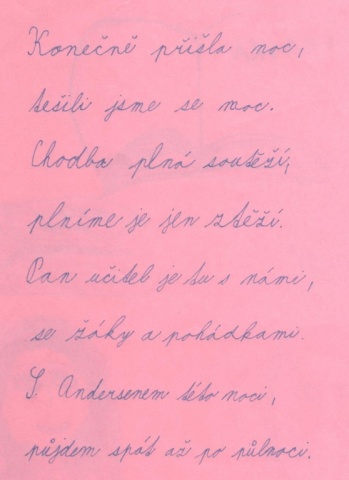 Konečně přišla noc,
tešili jsme se moc.
Chodba plná soutěží,
plníme je jen ztěží.
Pan učitel je tu s námi,
se žáky a pohádkami.
S Andersenem této noci,
půjdem spát až po půlnoci.